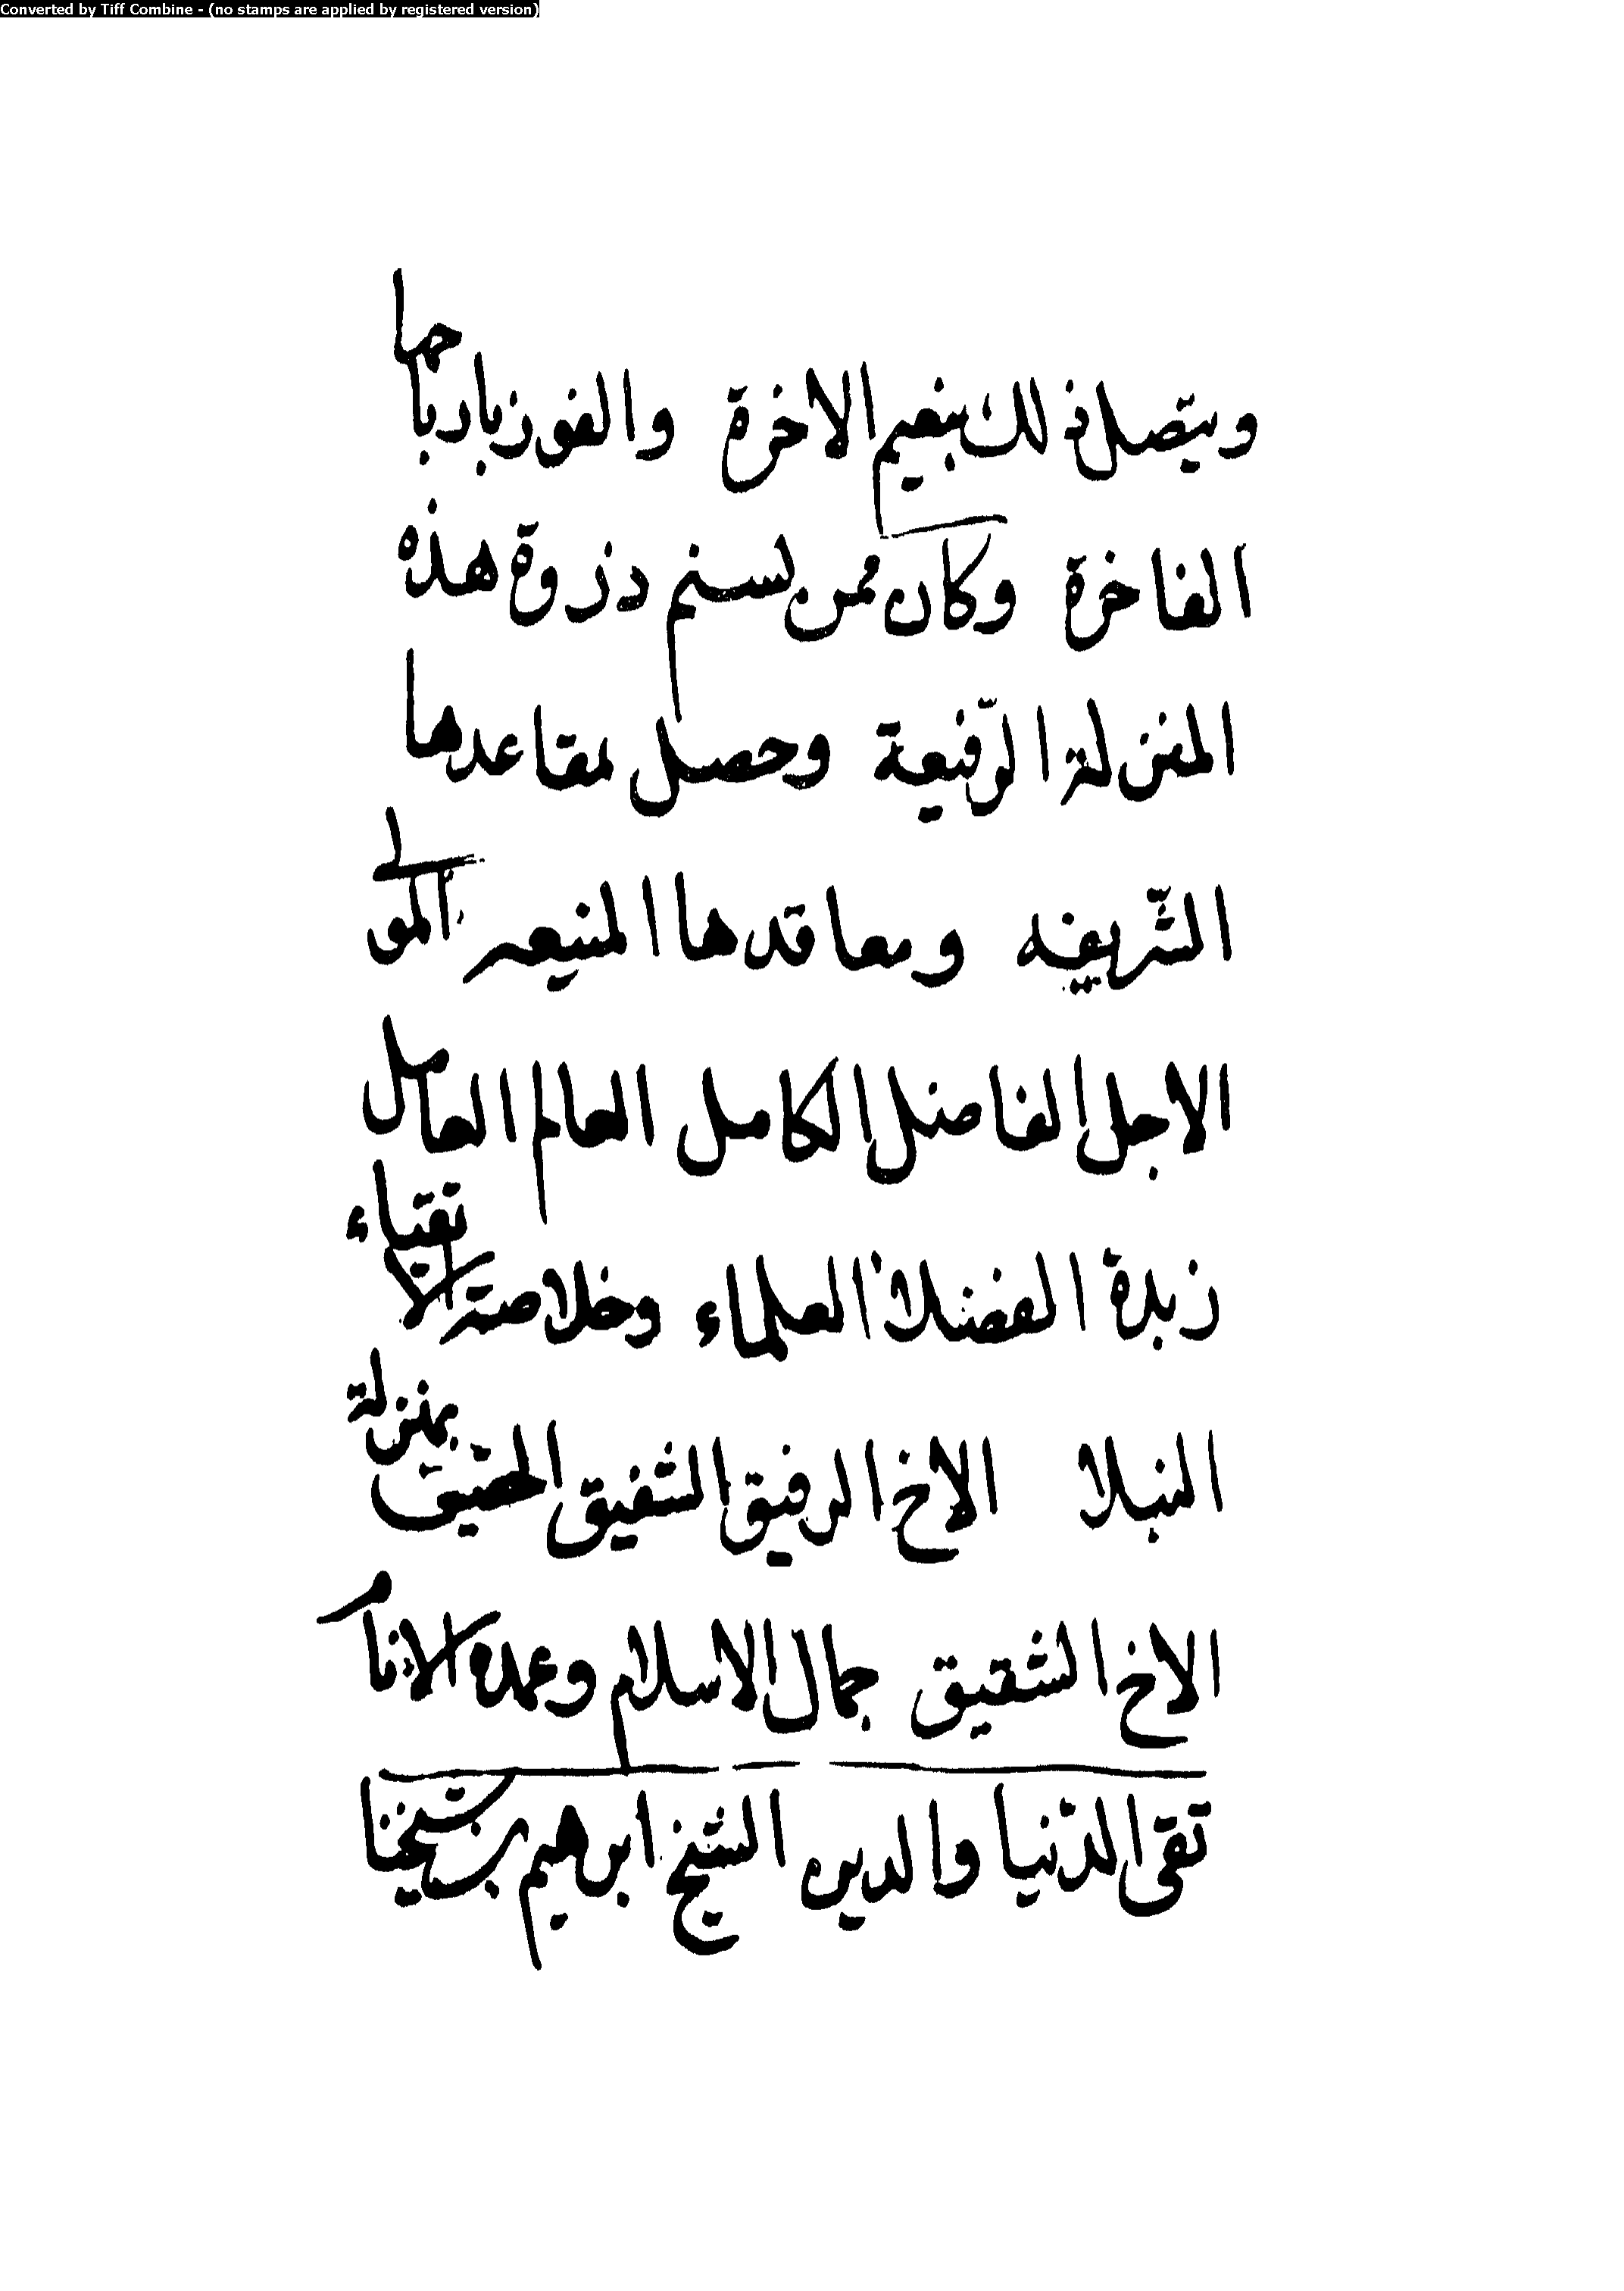 Converted by Tiff Combine - (no stamps are applied by registered version)
ويتصل ذلك بنعيم الاخرة والفوز بادباحها
الفاخرة وكان ممن تسنم دزوة هذه
المنزلة الرّفيعة وحصل بمقاعدها
الشّريفه ومعاقدها المنيعه المولى
الاجل الفاضل الكامل العالم العامل
زبدة الفضلاء العلماء وخلاصة الاتقياء
النبلا الاخ الرفيق الشفيق الحقيق بمنزلة
الاخ الشقيق جمال الاسلام وعمده الانام
تقى الدّنيا والدين الشيخ ابرهيم بن شيخنا